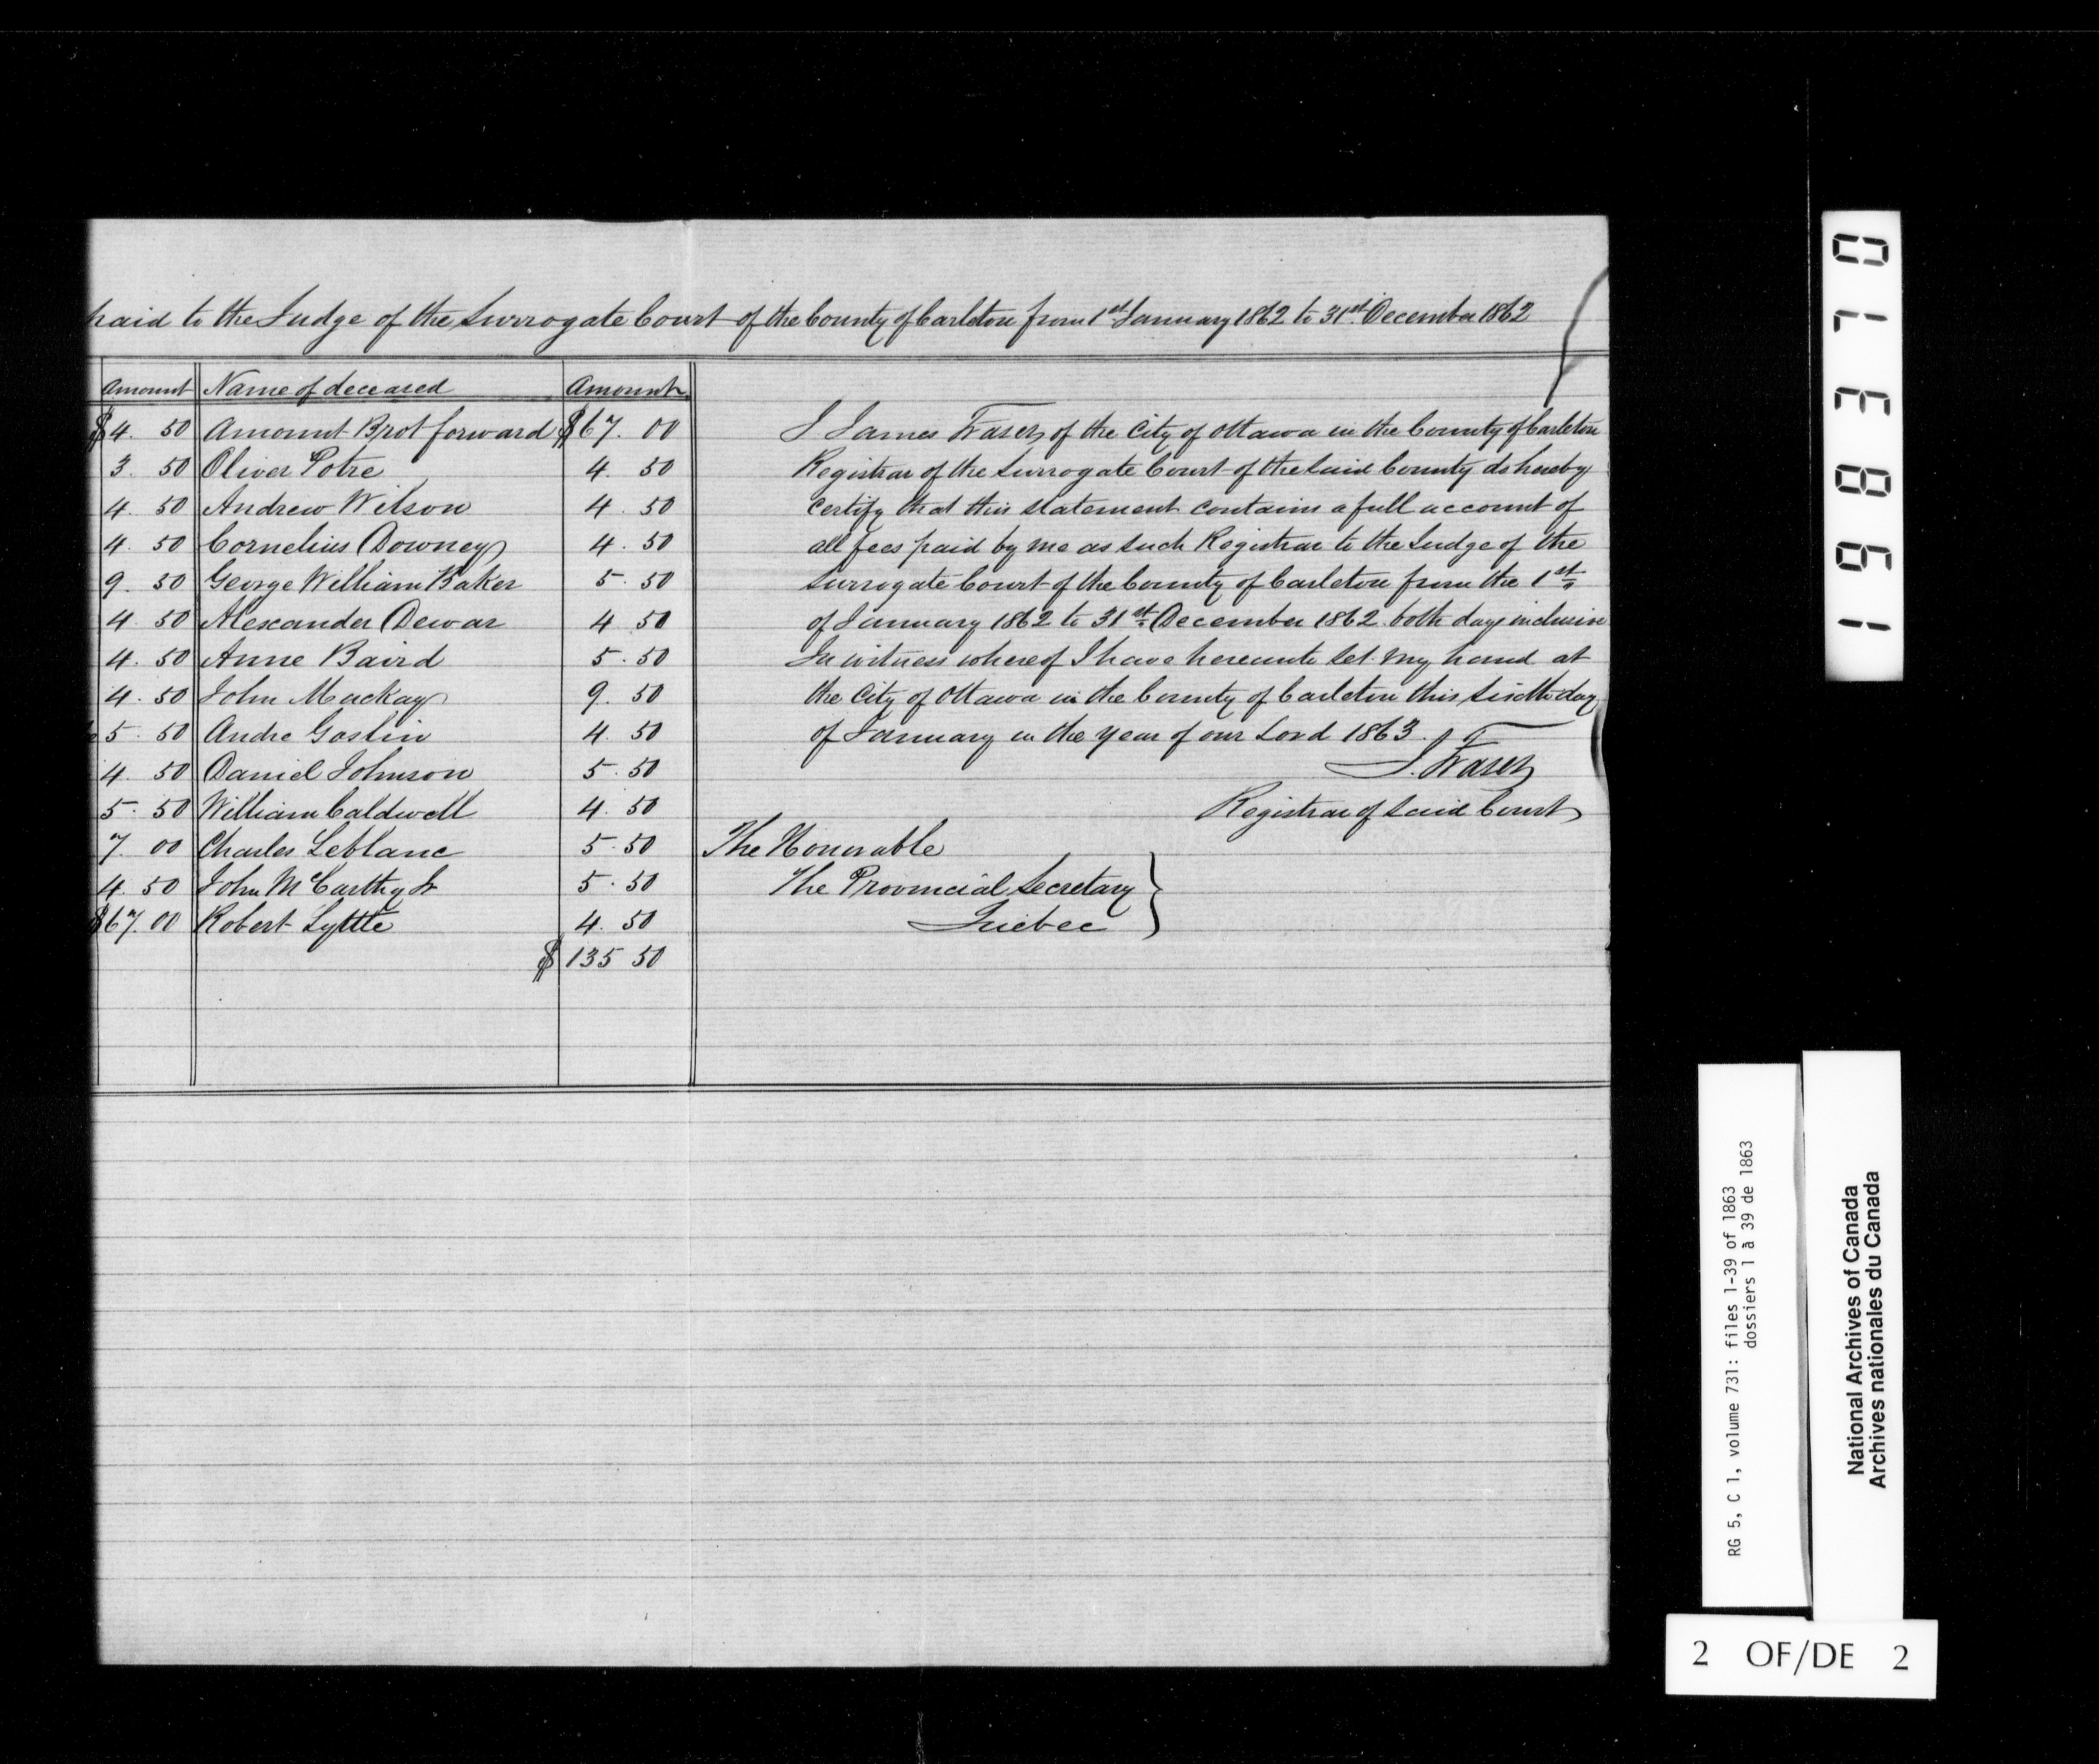 paid to the Judge of the Surrogate Court of the County of Carleton from 1st January 1862 to 31st December 1862
Amount Name of deceased Amount
$4. 50 Amount Brot forward $67. 00
3 50 Oliver Potre 4. 50
4. 50 Andrew Wilson 4. 50
4. 50 Cornelius Downey 4. 50
9. 50 George William Baker 5. 50
4 50 Alexander Dewar 4 50
4. 50 Anne Baird 5. 50
4. 50 John Mackay 9. 50
5. 50 Andre Goslin 4. 50
4. 50 Daniel Johnson 5. 50
5. 50 William Caldwell 4. 50
7. 00 Charles Leblanc 5. 50
4. 50 John McCarthy Jr 5. 50
$67. 00 Robert Lyttle 4. 50
$ 135 50
I James Fraser of the City of Ottawa in the County of Carleton
Registrar of the Surrogate Court of the Said County do hereby
certify that this statement contains a full account of
all fees paid by me as such Registrar to the Judge of the
Surrogate Court of the County of Carleton from the 1st
of January 1862 to 31st December 1862 both days inclusive
In witness whereof I have hereunto set my hand at
the City of Ottawa in the County of Carleton this sixth day
of January in the year of our Lord 1863.
J. Fraser
Registrar of Said Court
The Honorable
The Provincial Secretary
Quebec
198370
RG 5, C 1, volume 731: files 1-39 of 1863
dossiers 1 à 39 de 1863
National Archives of Canada
Archives nationales du Canada
2 OF/DE 2